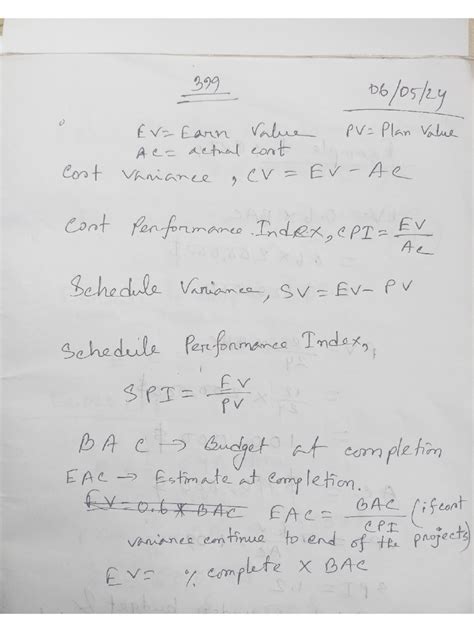 399
06/05/24
EV= Earn Value PV= Plan Value
AC= actual cost
Cost Variance, CV = EV - AC
Cost Performance Index, CPI = EV/AC
Schedule Variance, SV = EV- PV
Schedule Performance Index,
SPI = EV/PV
BAC → Budget at completion
EAC → Estimate at completion.
EV=0.6 X BAC EAC = BAC/CPI (if cost
variance continue to end of the projects)
EV= % complete X BAC